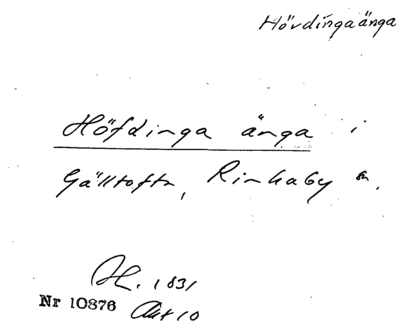 Hövdingaänga
Höfdinga änga i
Gälltofta, Rinkaby sn.
1831
Nr 10876 Akt 10